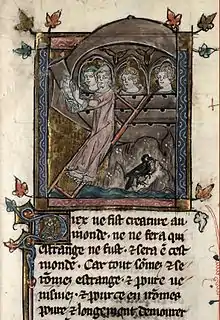 Diex ne fist creature au
monde. ne ne fera qui
estrange ne fust. & sera ē cest
monde. Car tout sōmes & se
rōmes estrange & poure ve
& pour ce en
poure & longemēt demourer